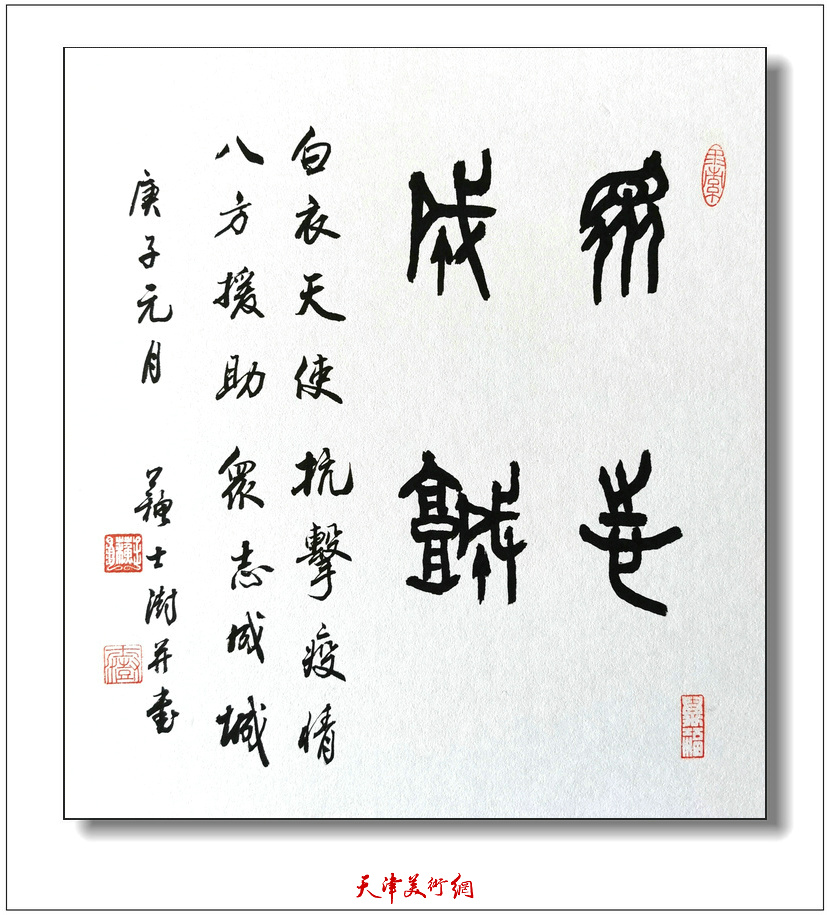 眾志
成城
白衣天使抗擊疫情
八方援助眾志成城
庚子元月 蘇士澍并書
天津美術網